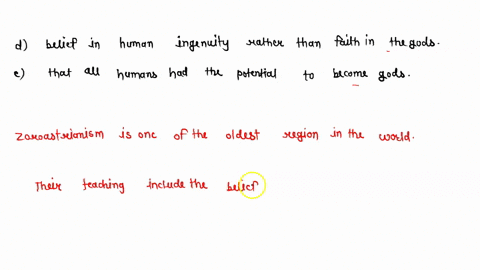 d) belief in human ingenuity rather than faith in the gods.
e) that all humans had the potential to become gods.
zoroastrionism is one of the oldest region in the world.
Their teaching include the belief